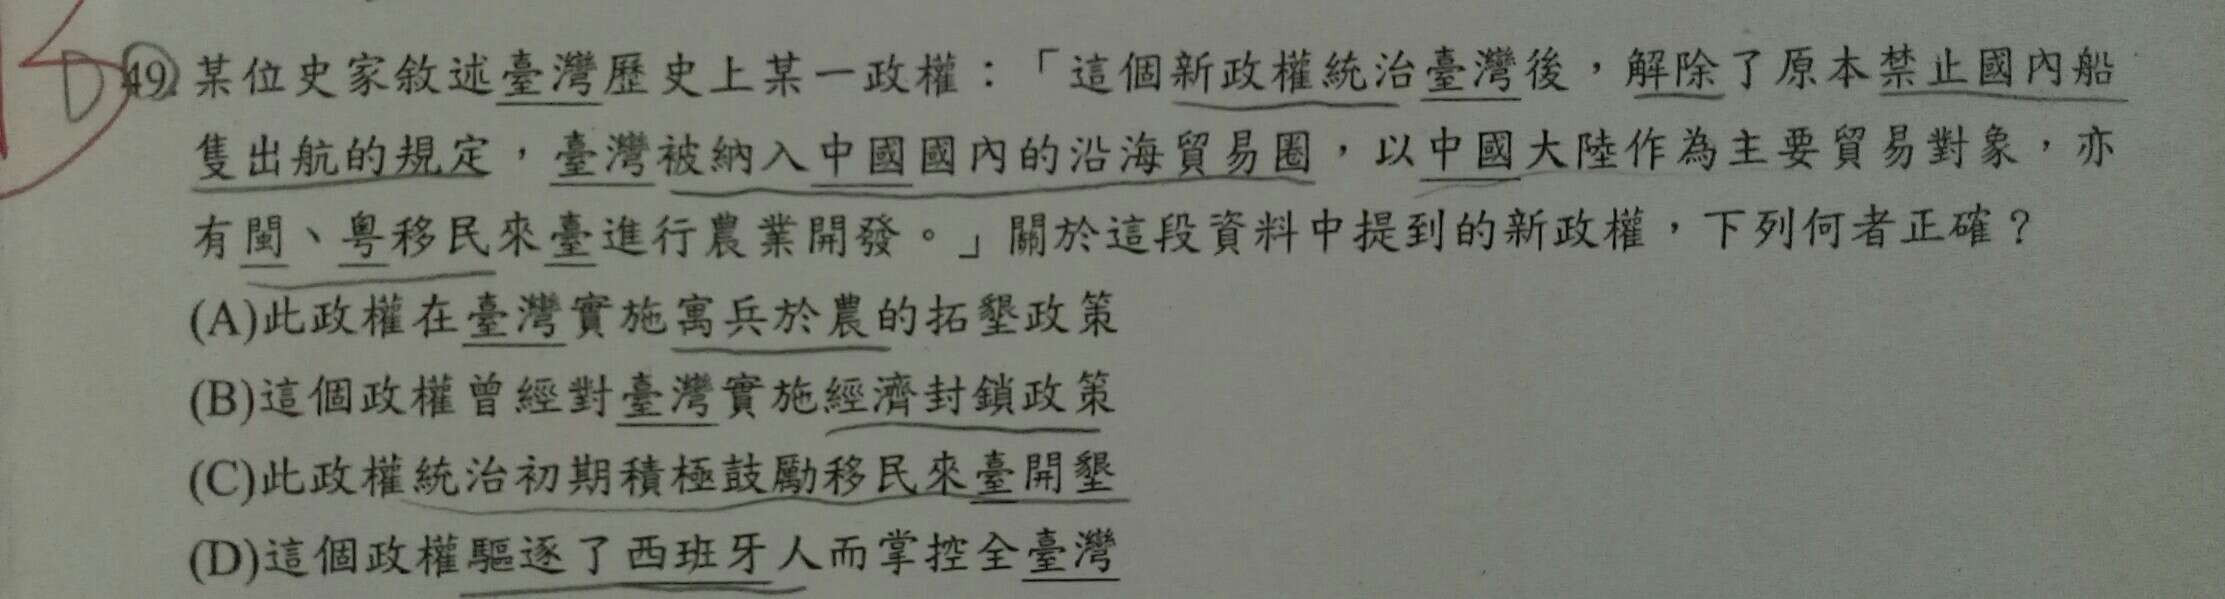 D 49. 某位史家敘述臺灣歷史上某一政權：「這個新政權統治臺灣後，解除了原本禁止國內船
隻出航的規定，臺灣被納入中國國內的沿海貿易圈，以中國大陸作為主要貿易對象，亦
有閩、粵移民來臺進行農業開發。」關於這段資料中提到的新政權，下列何者正確？
(A)此政權在臺灣實施寓兵於農的拓墾政策
(B)這個政權曾經對臺灣實施經濟封鎖政策
(C)此政權統治初期積極鼓勵移民來臺開墾
(D)這個政權驅逐了西班牙人而掌控全臺灣